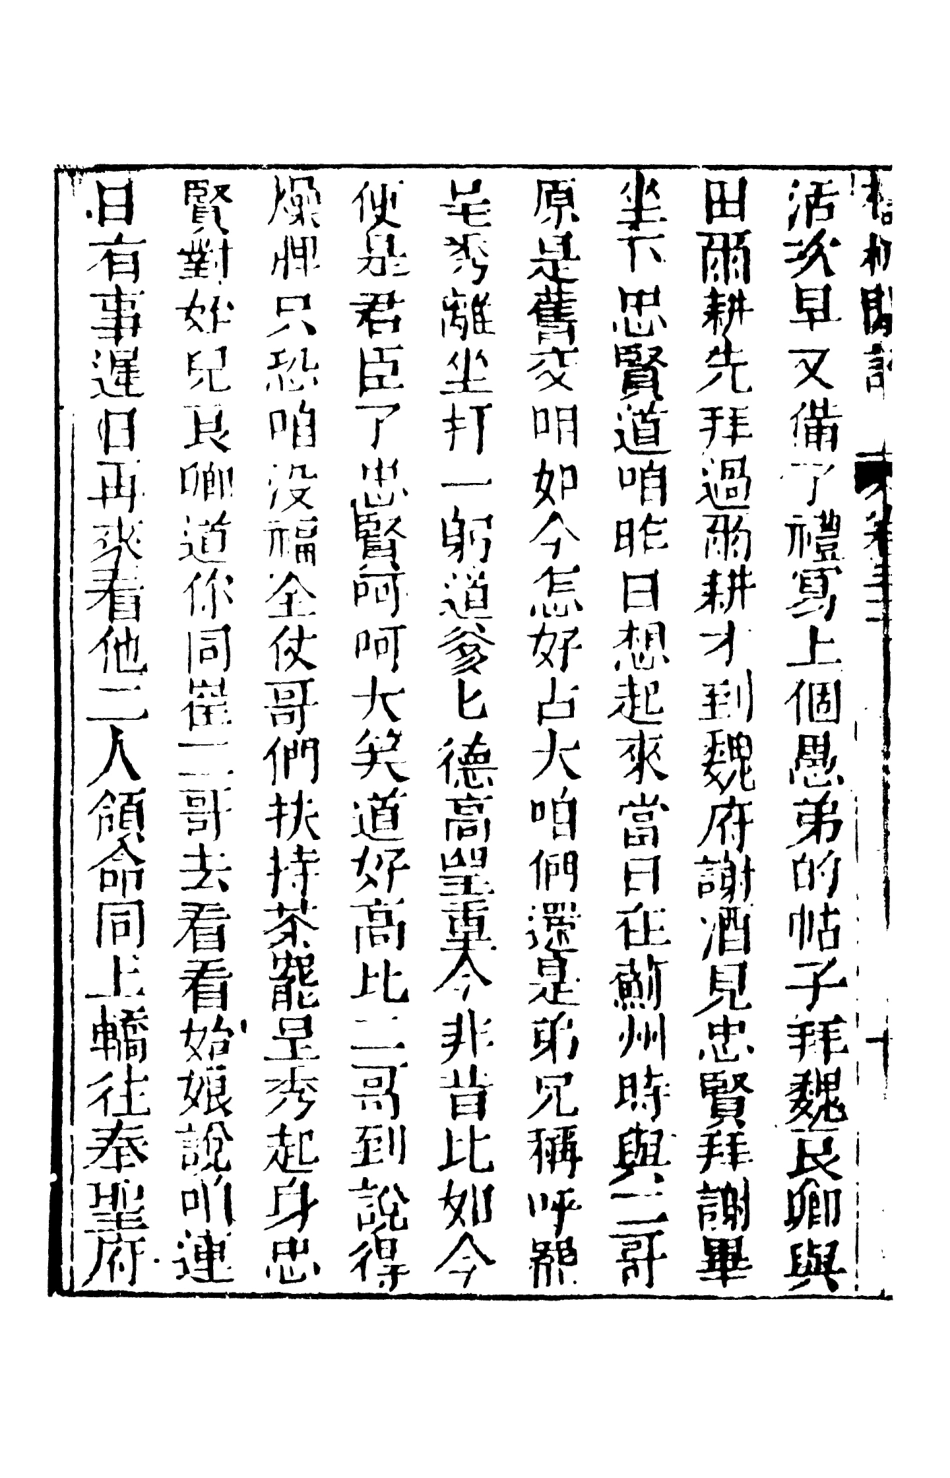 檮杌閒評 卷三十
活次早又備了禮寫上個愚弟的帖子拜魏良卿與
田爾耕先拜過爾耕才到魏府謝酒見忠賢拜謝畢
坐下忠賢道咱昨日想起來當日在薊州時與二哥
原是舊交明如今怎好占大咱們還是弟兄稱呼罷
呈秀離坐打一躬道爹匕德高望重今非昔比如今
使是君臣了忠賢呵呵大笑道好高比二哥到說得
燥脾只恐咱沒福全仗哥們扶持茶罷呈秀起身忠
賢對姪兒良卿道你同崔二哥去看看姑娘說咱連
日有事遲日再來看他二人領命同上轎往奉聖府